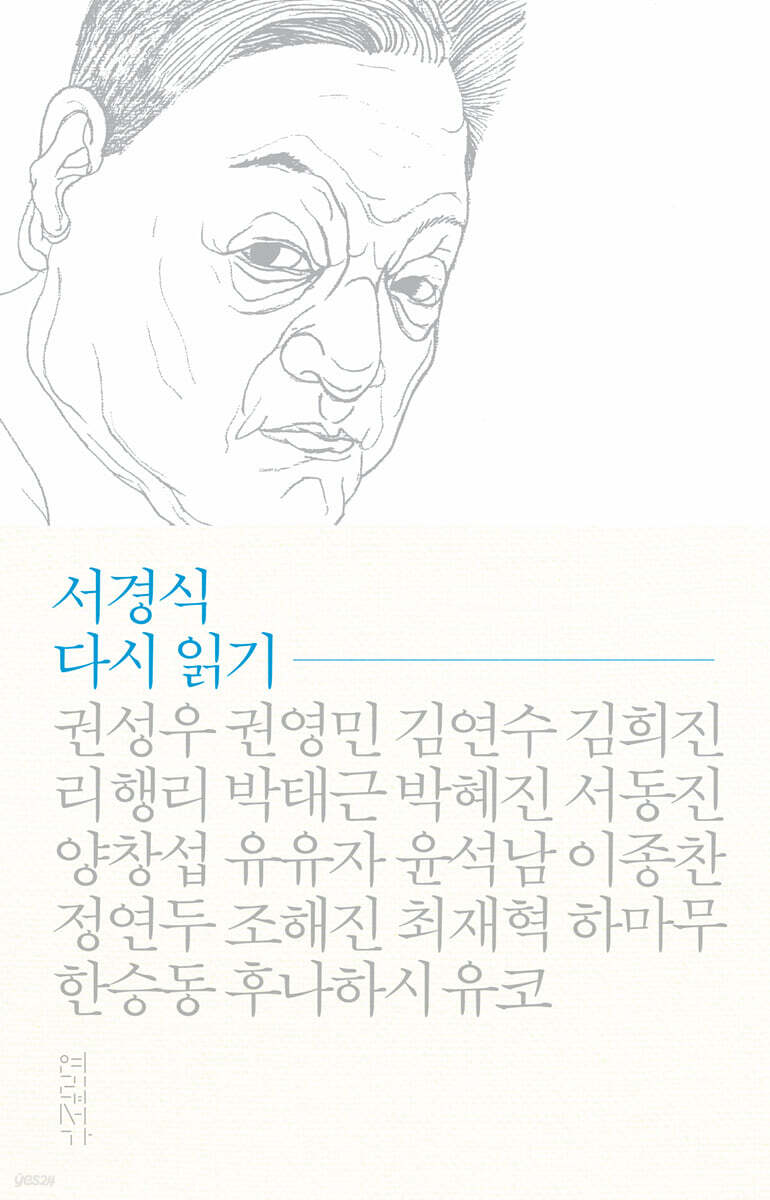 서경식
다시 읽기
권성우 권영민 김연수 김희진
리행리 박태근 박혜진 서동진
양창섭 유유자 윤석남 이종찬
정연두 조해진 최재혁 하마무
한승동 후나하시 유코
연립서가
yes24